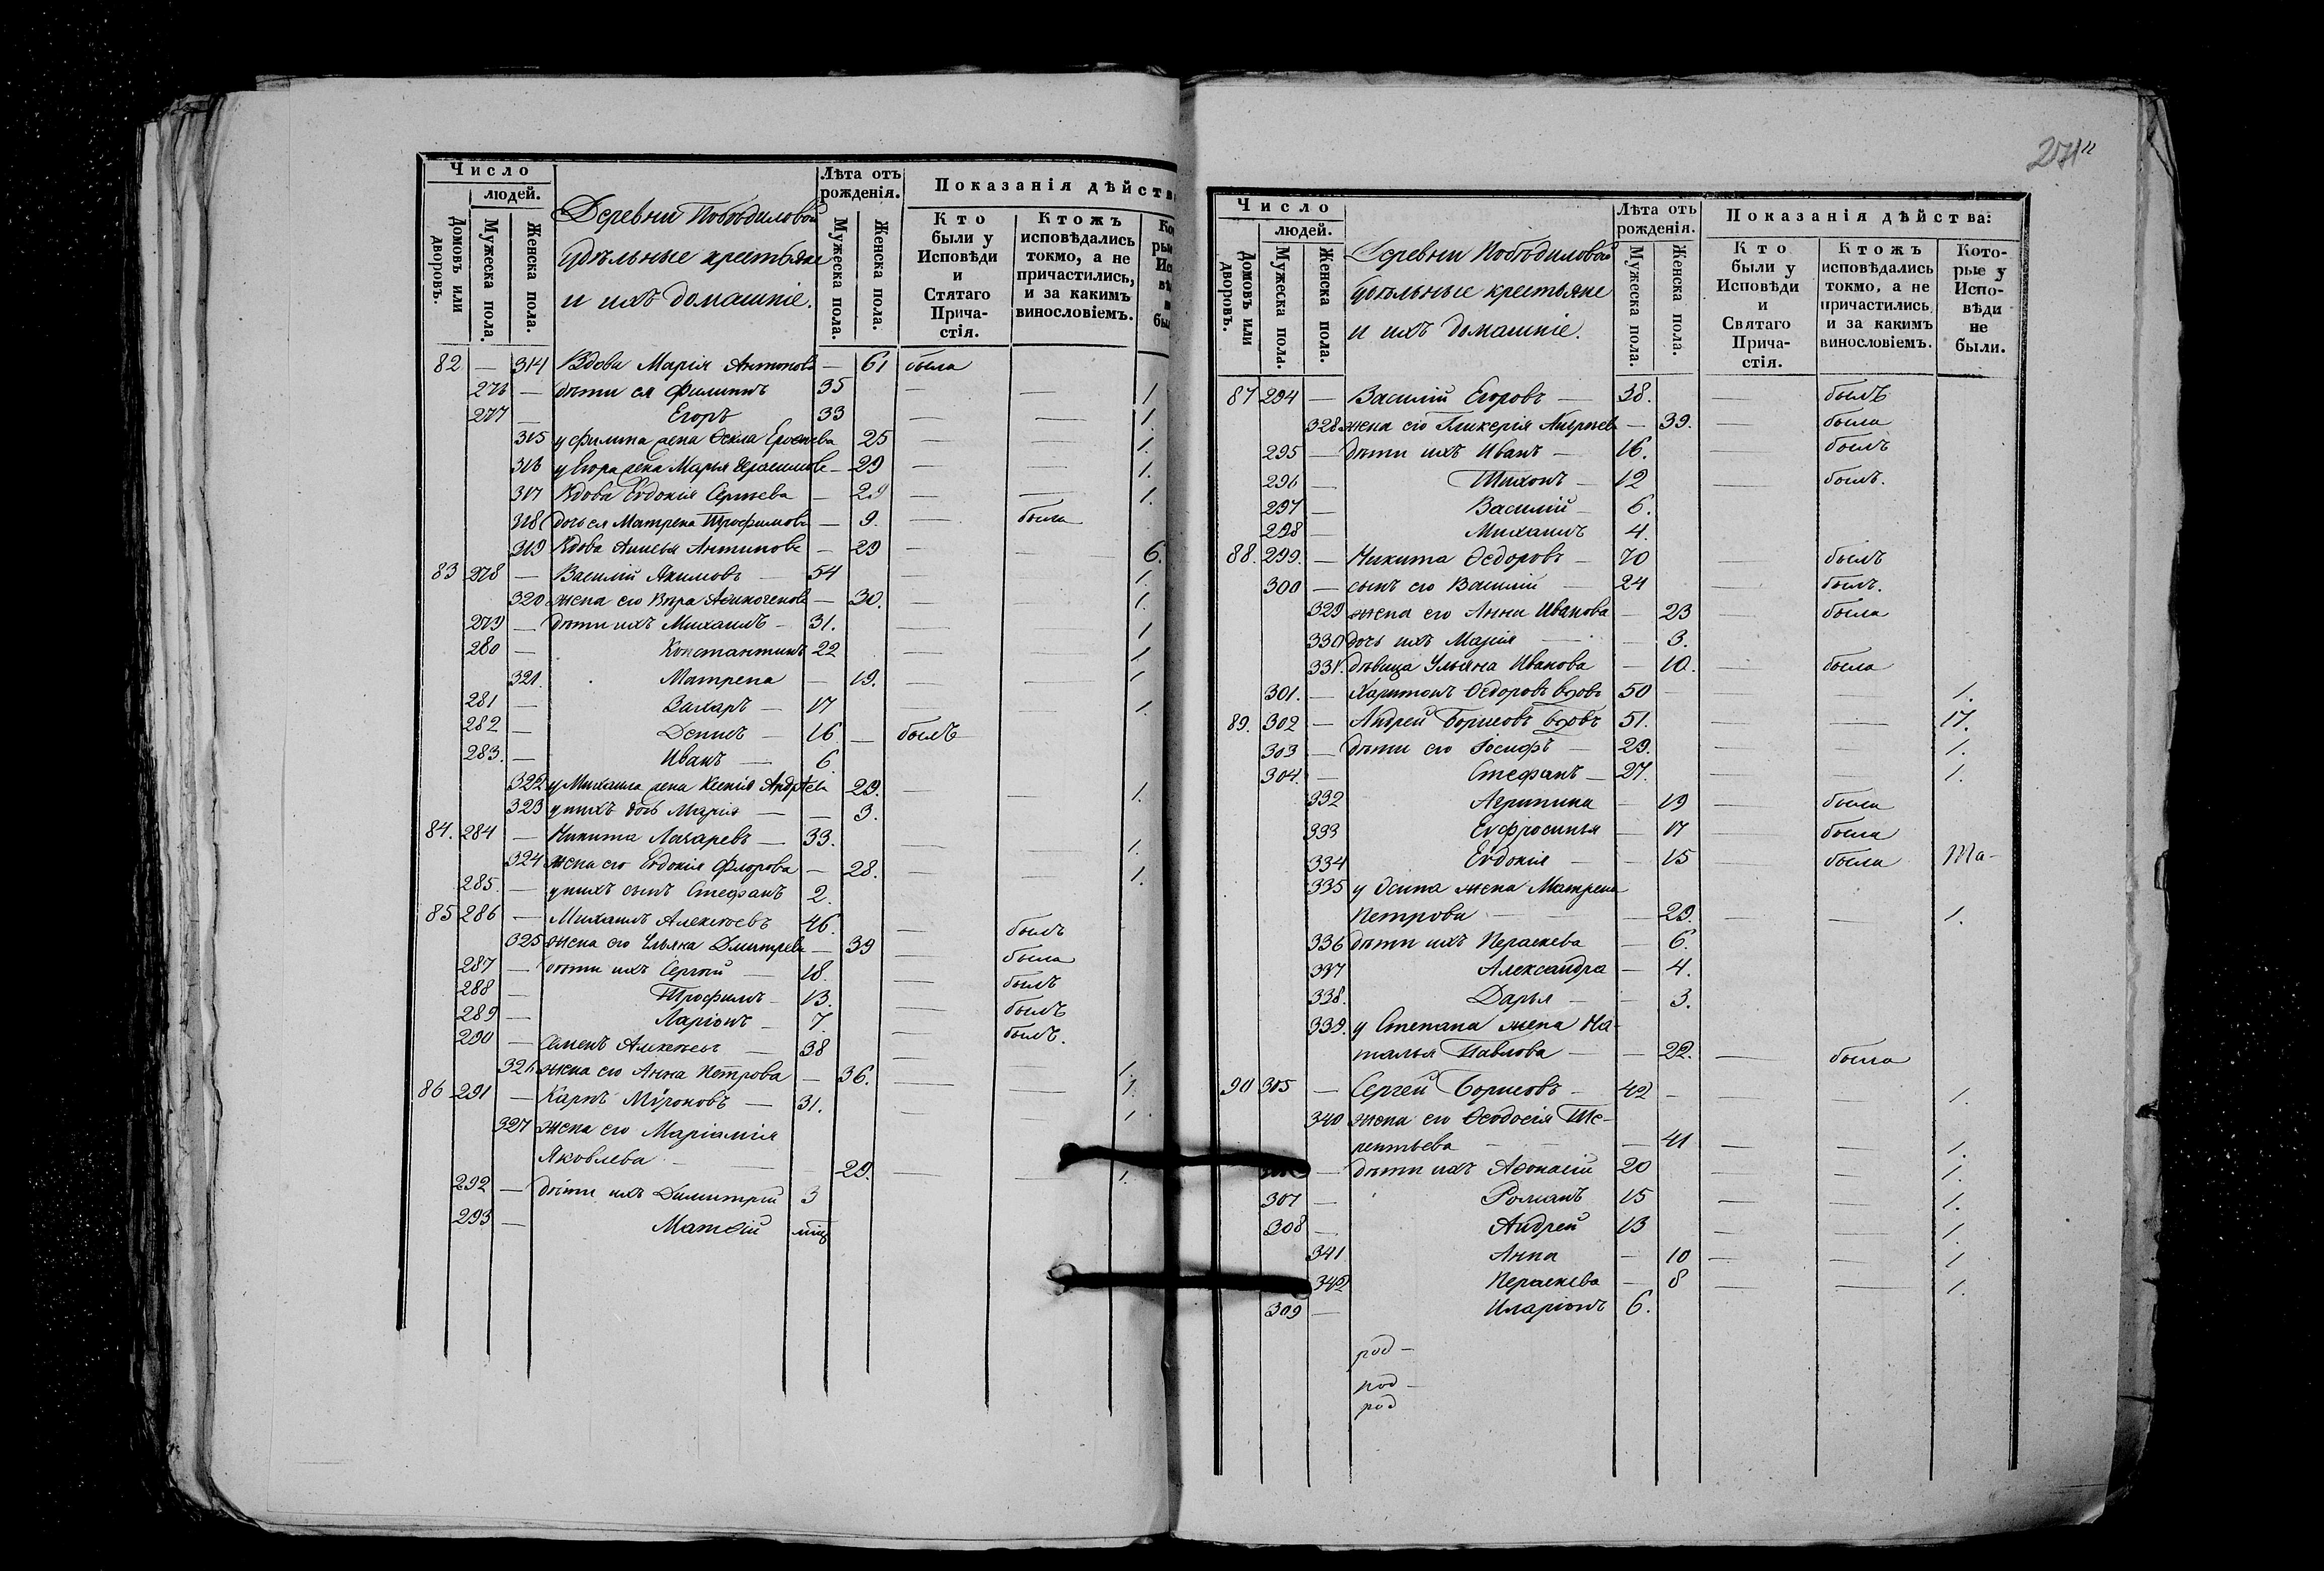 Число
людей.
Домовъ или дворовъ.
Мужеска пола.
Женска пола.
Деревни Побѣдиловой
Удѣльные крестьяне
и ихъ домашніе.
Лѣта отъ
рожденія.
Мужеска пола.
Женска пола.
Показанія дѣйств
Кто
были у
Исповѣди
и
Стятаго
Прича-
стія.
Ктожъ
исповѣдались
токмо, а не
причастились,
и за какимъ
винословіемъ.
82 — 314 Вдова Марія Антонова — 61 была
276 — дѣти ея Филиппъ 35 — — 1
277 — Егоръ 33 — — 1.
315 у Филипа жена Ѳекла 25 — 1.
316 у Егора жена Марья Герасимова — 29 — — 1.
317 Вдова Евдокія Сергѣева — 29 — — 1.
318 дочь ея Матрена Трофимова — 9. — была
319 Вдова Антипова — 29 — — 6.
83 278 — Василій Якимовъ — 54 1.
320 жена его Вѣра — 30. — — 1.
279 — дѣти ихъ Михаилъ — 31. — 1
280 — Константинъ 22 — — 1
321. Матрена — 19. — — 1
281 — Захаръ — 17 — — 1.
282 — Денисъ — 16 — былъ
283. — Иванъ — 6
322 у Михаила жена Ксенія Андрѣева 29. — — 1.
323 у нихъ дочь Марія — — 3.
84. 284 — Никита Лазаревъ — 33. — — 1.
324 жена его Евдокія Флорова — 28. — — 1.
285. — у нихъ сынъ Стефанъ 2.
85 286 — Михаилъ Алексѣевъ 46. — былъ
325 жена его Ульяна Дмитрева — 39 — была
287 — дѣти ихъ Сергѣй — 18. — былъ
288 — Трофимъ — 13. — былъ
289 — Ларіонъ — 7. — былъ.
290 — Семенъ Алексѣевъ — 38 — 1.
326 жена его Анна Петрова — 36. — — 1.
86 291 — Карпъ Мироновъ — 31. — — 1
327 жена его Маріамія
Яковлева — 29. — — 1.
292 — дѣти ихъ Димитрій 3
293 — Матѳій
271
Число
людей.
Домовъ или дворовъ.
Мужеска пола.
Женска пола.
Деревни Побѣдиловой
Удѣльные крестьяне
и ихъ домашніе.
Лѣта отъ
рожденія.
Мужеска пола.
Женска пола.
Показанія дѣйства:
Кто
были у
Исповѣди
и
Святаго
Прича-
стія.
Ктожъ
исповѣдались
токмо, а не
причастились
и за какимъ
винословіемъ.
Кото-
рые у
Испо-
вѣди
не
были.
87 294 — Василій Егоровъ — 38. — былъ
328 жена его Гликерія — 39. — была
295 — дѣти ихъ Иванъ — 16. — былъ
296 — Тихонъ — 12 — былъ.
297 — Василій — 6.
298 — Михаилъ 4.
88. 299. — Никита Ѳедоровъ — 70 — былъ
300 — сынъ его Василій — 24 — былъ.
329 жена его Анна Иванова — 23 — была
330 дочь ихъ Марія — — 3.
331. дѣвица Ульяна Иванова — 10. — была
301. — Харитонъ Ѳедоровъ вдовъ 50 — — 1.
89. 302 — Андрей Борисовъ вдовъ 51. — — 17.
303 — дѣти его Іосифъ — 29. — — 1.
304. — Стефанъ — 27. — — 1.
332 Агрипина — 19 — была
333 Евфросинья — 17 — была
334 Евдокія — — 15 — была
335 у Осипа жена Матрена
Петрова — — 29. — — 1.
336 дѣти ихъ Пераскева — 6.
337 Александра — 4.
338. Дарья — — 3.
339. у Степана жена На-
талья Павлова — — 22. — была
90 305 — Сергей Борисовъ — 42 — — 1.
340 жена его Ѳеодосія Те-
рентьева — — 41 — — 1.
— дѣти ихъ Аѳонасій 20 — — 1.
307 — Романъ 15 — — 1.
308 — Андрей 13 — — 1.
341 Анна — 10 — — 1
342 Пераскева — 8 — — 1.
309 — Иларіонъ 6.
род —
род —
род